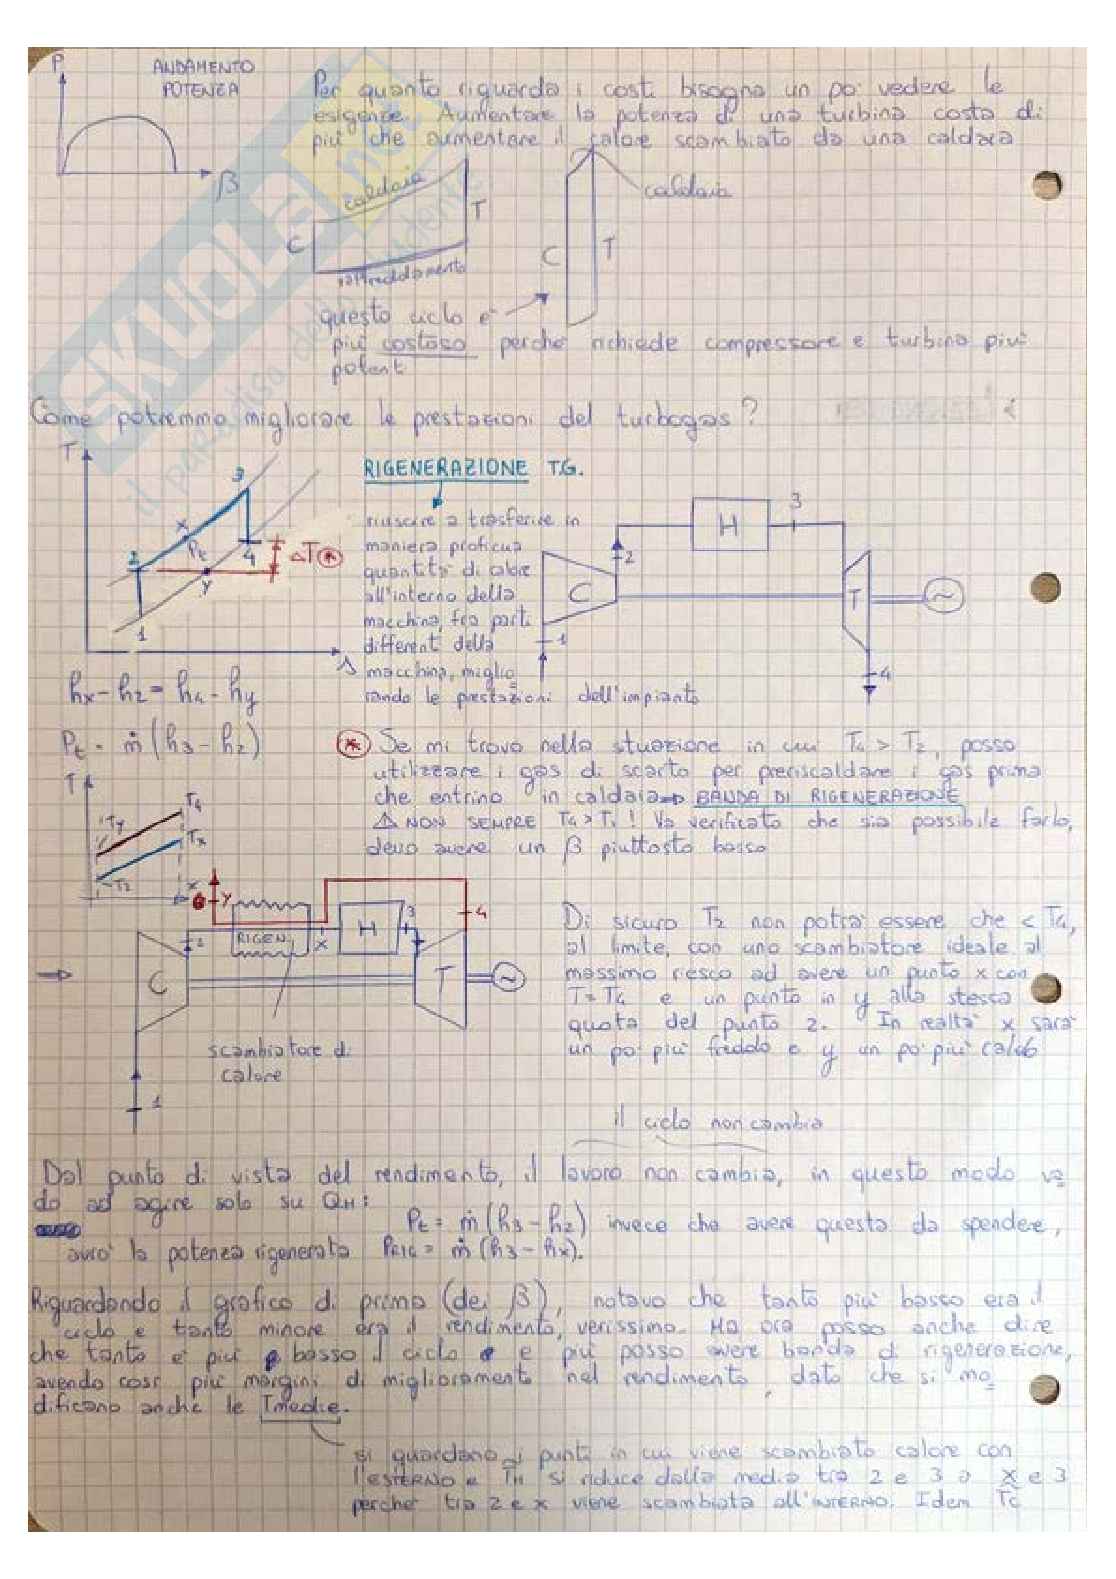 P
ANDAMENTO
POTENZA
β
Per quanto riguarda i costi bisogna un po' vedere le
esigenze. Aumentare la potenza di una turbina costa di
più che aumentare il calore scambiato da una caldaia
caldaia
C
T
raffreddamento
caldaia
C
T
questo ciclo è
più costoso perchè richiede compressore e turbina più
potenti
Come potremmo migliorare le prestazioni del turbogas?
T
3
x
Pt
2
4
ΔT *
y
1
s
RIGENERAZIONE T.G.
riuscire a trasferire in
maniera proficua
quantità di calore
all'interno della
macchina, fra parti
differenti della
macchina, miglio
rando le prestazioni dell'impianto
H
3
2
C
T
~
1
4
hx - h2 = h4 - hy
Pt = ṁ (h3 - h2)
* Se mi trovo nella situazione in cui T4 > T2, posso
utilizzare i gas di scarto per preriscaldare i gas prima
che entrino in caldaia => BANDA DI RIGENERAZIONE
⚠ NON SEMPRE T4 > T2 ! Va verificato che sia possibile farlo,
devo avere un β piuttosto basso
T
T4
Ty
Tx
T2
x
6
y
4
RIGEN.
H
3
2
x
C
T
~
scambiatore di
calore
1
Di sicuro T2 non potrà essere che < T4,
al limite, con uno scambiatore ideale al
massimo riesco ad avere un punto x con
T = T4 e un punto in y alla stessa
quota del punto 2. In realtà x sarà
un po' più freddo e y un po' più caldo
il ciclo non cambia
Dal punto di vista del rendimento, il lavoro non cambia, in questo modo va
do ad agire solo su QH:
Pt = ṁ (h3 - h2) invece che avere questa da spendere,
avrò la potenza rigenerata PRIG = ṁ (h3 - hx).
Riguardando il grafico di prima (dei β), notavo che tanto più basso era il
ciclo e tanto minore era il rendimento, verissimo. Ma ora posso anche dire
che tanto è più basso il ciclo e e più posso avere banda di rigenerazione,
avendo così più margini di miglioramento nel rendimento, dato che si mo
dificano anche le Tmedie.
si guardano i punti in cui viene scambiato calore con
l'ESTERNO e TH si riduce dalla media tra 2 e 3 a x e 3
perchè tra 2 e x viene scambiata all'INTERNO. Idem Tc
SKUOLA.net
il paradiso dello studente